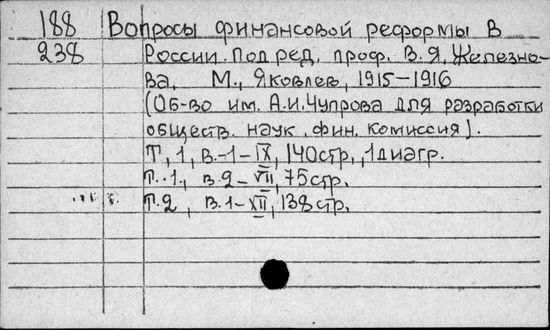 188 Вопросы финансовой реформы в
238 России. Под ред. проф. В.Я. Железно-
ва. М., Яковлев, 1915-1916
(Об-во им. А.И. Чупрова для разработки
обществ. наук. фин. комиссия).
Т, 1, в.-1-IX, 140стр., 1диагр.
т. 1., в.2-VII, 75стр.
т.2, в.1-XII, 138стр.